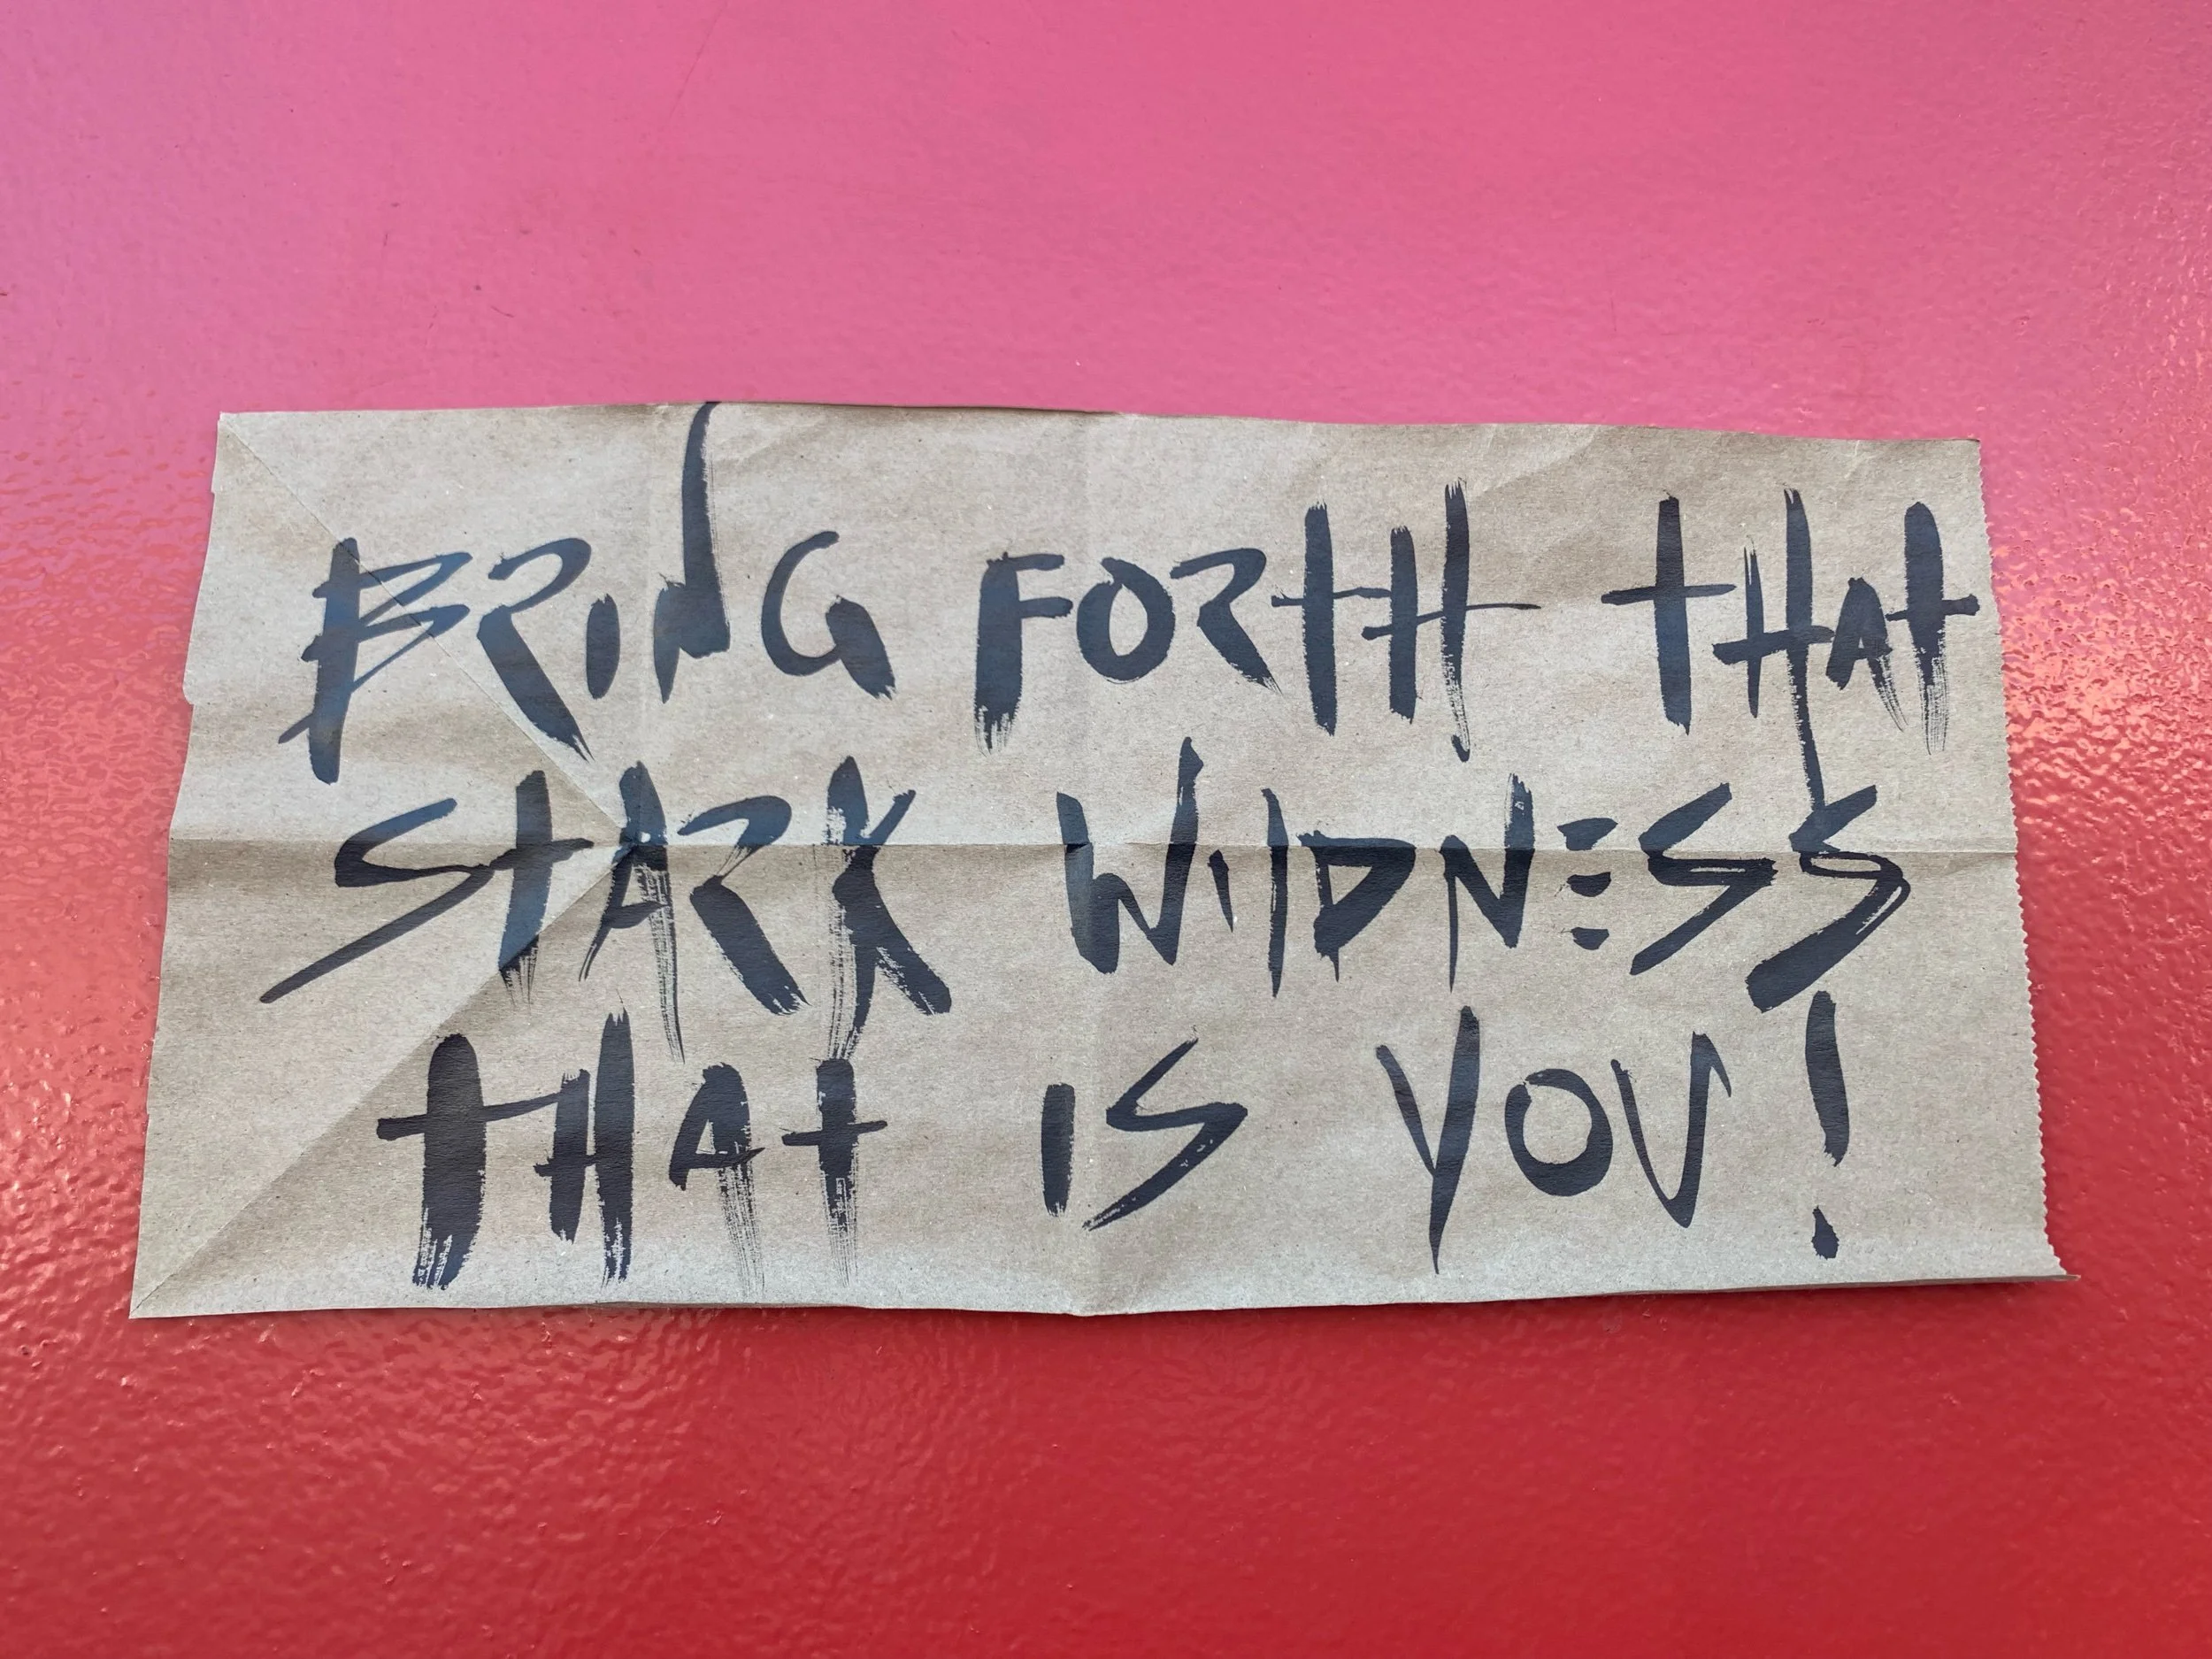 BRING FORTH THAT
STARK WILDNESS
THAT IS YOU!